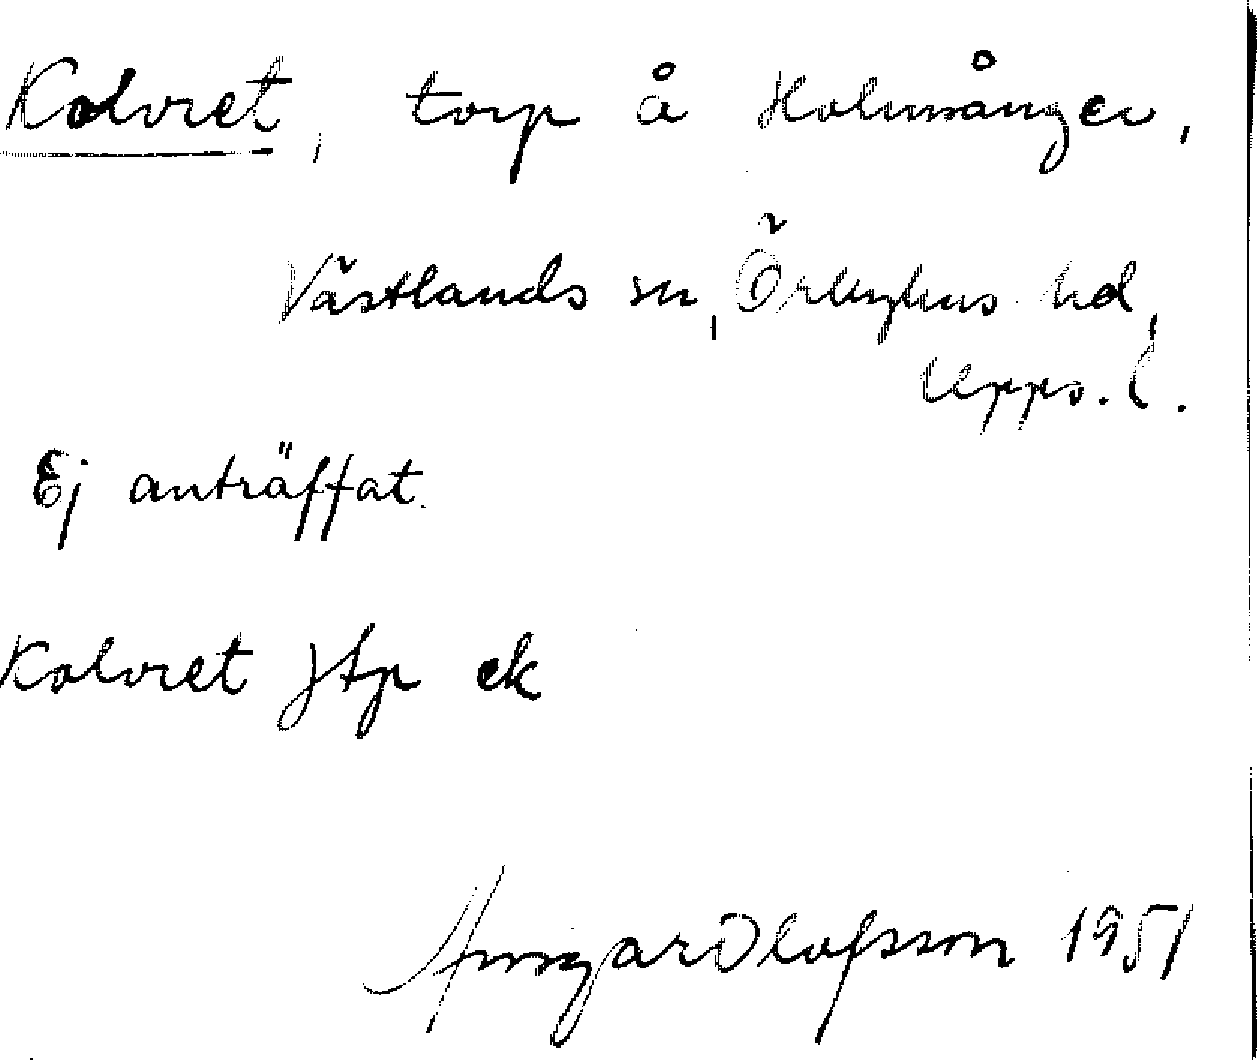 Kolvret, torp å Holmsånger,
Västlands sn, Örbyhus hd,
Upps. l.
Ej anträffat.
Kolvret jtp ek
Ansgar Olofsson 1951